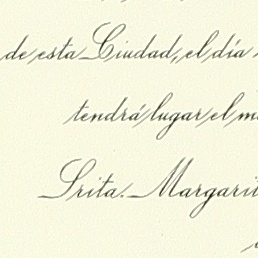 de esta Ciudad, el día
tendrá lugar el m
Srita. Margarit